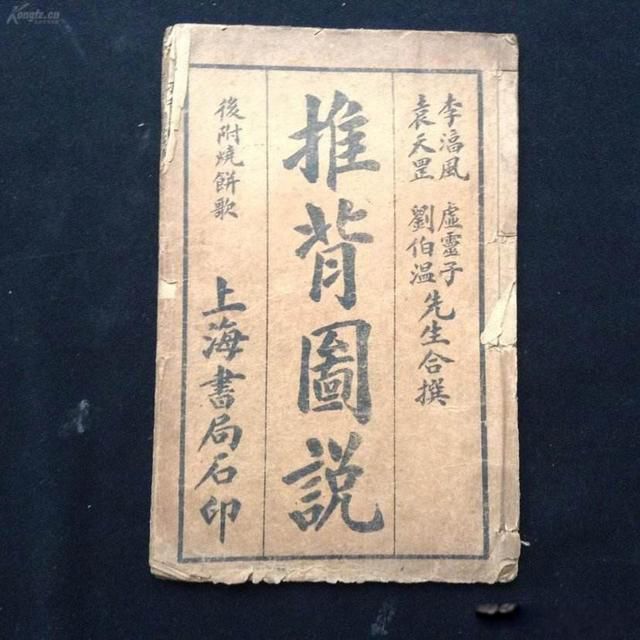 李淳風 虛靈子
袁天罡 劉伯温 先生合撰
推背圖説
後附燒餅歌
上海書局石印
Kongfz.cn